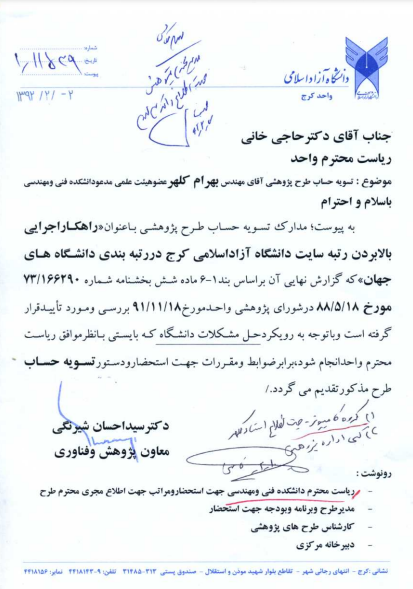 دانشگاه آزاد اسلامی
واحد کرج
شماره
تاریخ
پیوست
۱۳۹۲/۲/۰۲
جناب آقای دکترحاجی خانی
ریاست محترم واحد
موضوع : تسویه حساب طرح پژوهشی آقای مهندس بهرام کلهر عضوهیئت علمی مدعودانشکده فنی ومهندسی
باسلام و احترام
به پیوست؛ مدارک تسویه حساب طرح پژوهشی باعنوان«راهکاراجرایی
بالابردن رتبه سایت دانشگاه آزاداسلامی کرج دررتبه بندی دانشگاه های
جهان»که گزارش نهایی آن براساس بند۱-۶ ماده شش بخشنامه شماره ۷۳/۱۶۶۲۹۰
مورخ ۸۸/۵/۱۸ درشورای پژوهشی واحدمورخ۹۱/۱۱/۱۸ بررسی ومورد تأییدقرار
گرفته است وباتوجه به رویکردحل مشکلات دانشگاه که بایستی بانظرموافق ریاست
محترم واحدانجام شود،برابرضوابط ومقررات جهت استحضارودستورتسویه حساب
طرح مذکورتقدیم می گردد./
دکترسیداحسان شیرنگی
معاون پژوهش وفناوری
رونوشت :
- ریاست محترم دانشکده فنی ومهندسی جهت استحضارومراتب جهت اطلاع مجری محترم طرح
- مدیرطرح وبرنامه وبودجه جهت استحضار
- کارشناس طرح های پژوهشی
- دبیرخانه مرکزی
نشانی :کرج - انتهای رجائی شهر - تقاطع بلوار شهید موذن و استقلال - صندوق پستی ۳۱۳-۳۱۴۸۵ تلفن: ۹-۴۴۱۸۱۴۳ نمابر: ۴۴۱۸۱۵۶